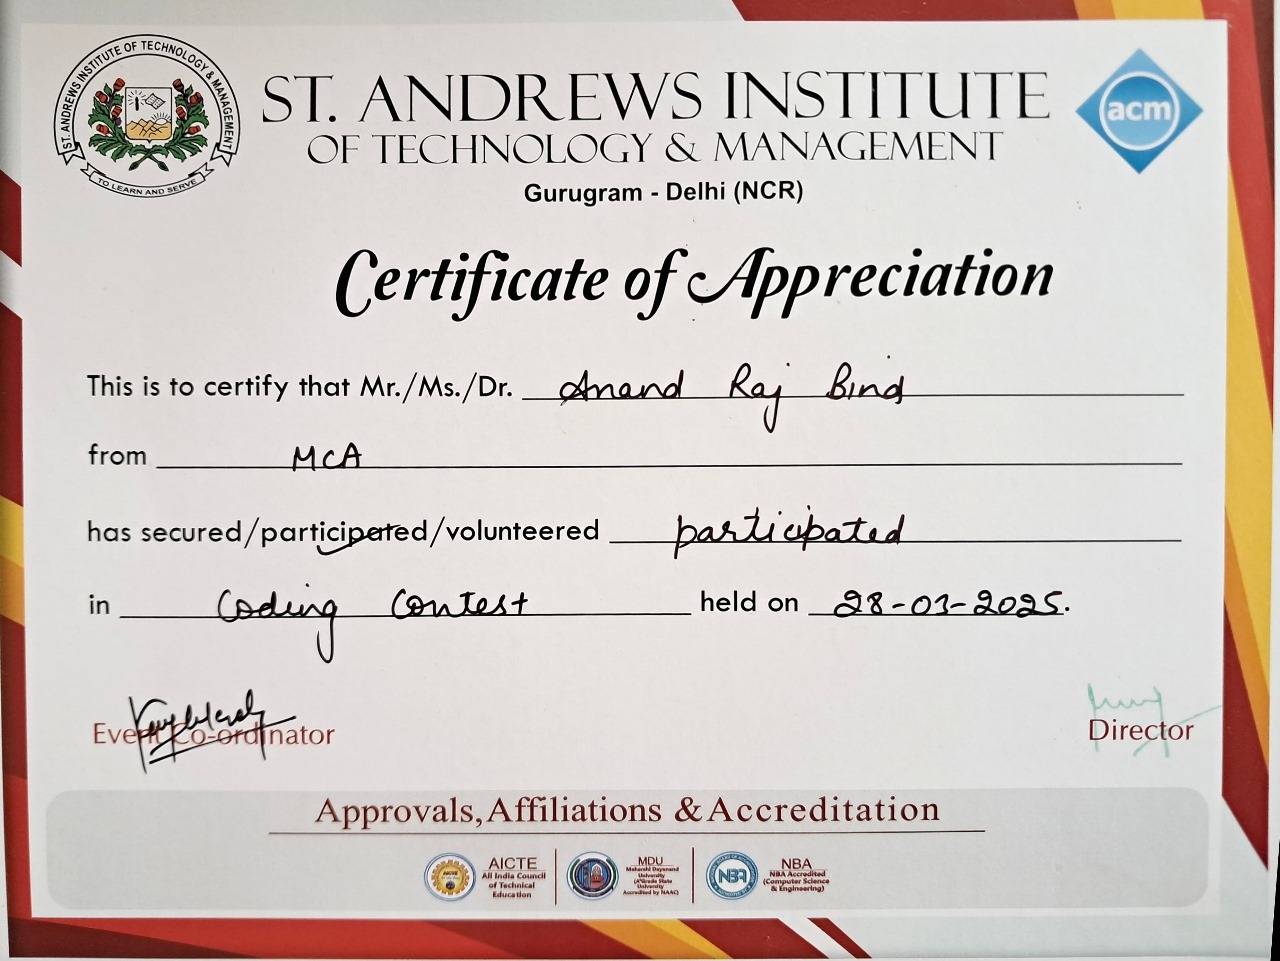 ST. ANDREWS INSTITUTE OF TECHNOLOGY & MANAGEMENT
TO LEARN AND SERVE
ST. ANDREWS INSTITUTE
OF TECHNOLOGY & MANAGEMENT
Gurugram - Delhi (NCR)
acm
Certificate of Appreciation
This is to certify that Mr./Ms./Dr. Anand Raj Bind
from MCA
has secured/participated/volunteered participated
in Coding Contest held on 28-03-2025.
Event Co-ordinator
Director
Approvals, Affiliations & Accreditation
AICTE
All India Council
of Technical
Education
MDU
Maharshi Dayanand
University
(A+ Grade State
University
Accredited by NAAC)
NBA
NBA
NBA Accredited
(Computer Science
& Engineering)